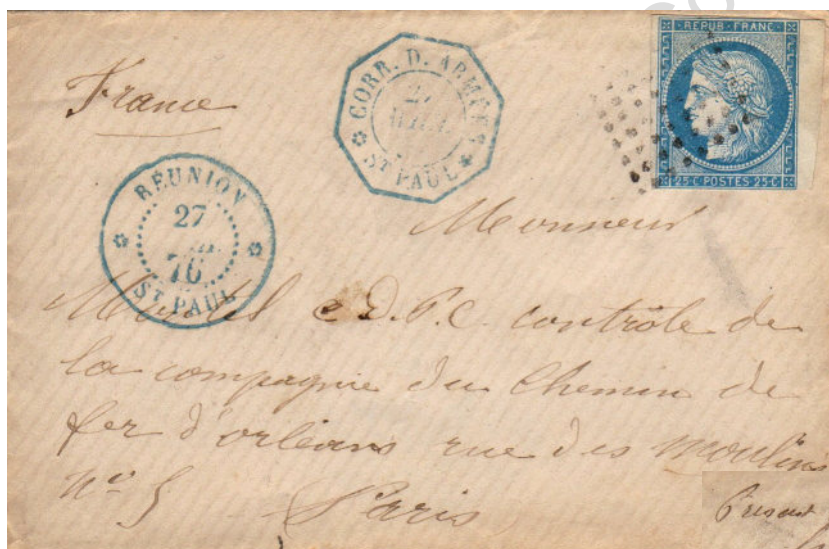 REPUB · FRANC ·
25·C POSTES 25·C
CORR. D. ARMÉES
ST PAUL
RÉUNION
27
76
ST PAUL
France
Monsieur
contrôle de
la compagnie du Chemin de
fer d'orléans rue des Moulins
n° 5 Paris